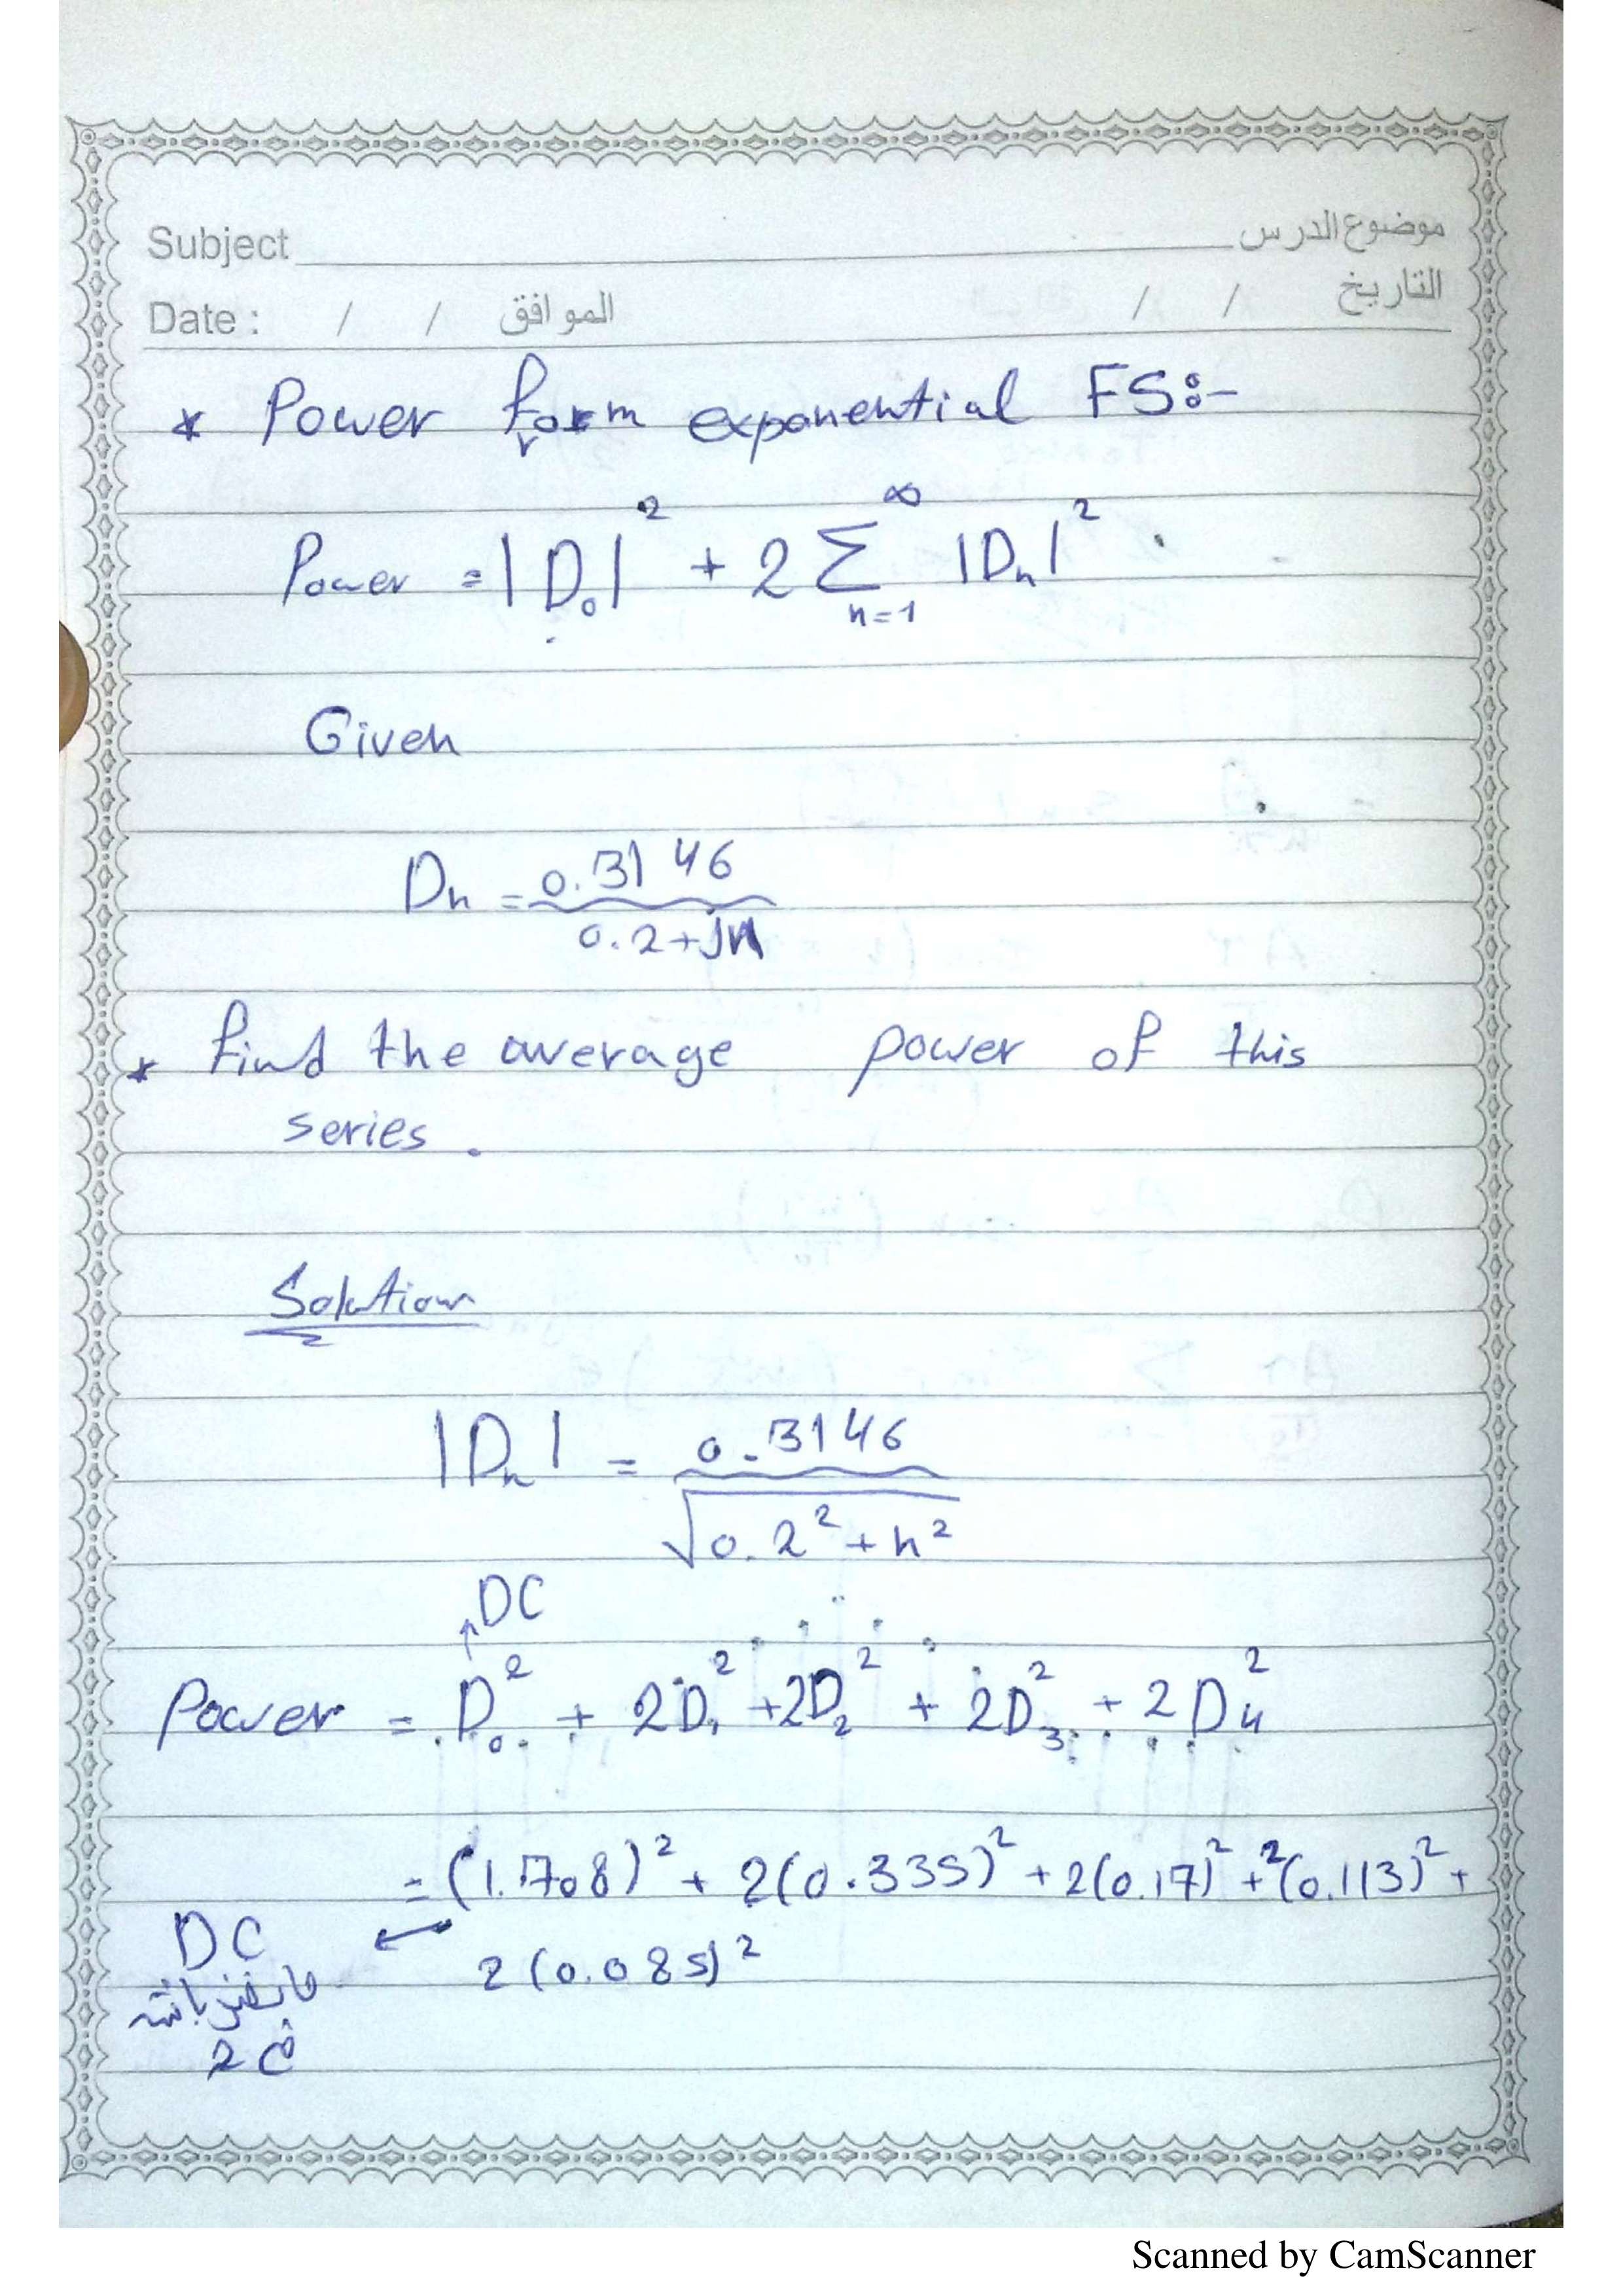 Subject موضوع الدرس
Date : / / الموافق / / التاريخ
* Power form exponential FS:-
Power = |D₀|² + 2 Σ |Dₙ|²
∞
n=1
Given
Dn = 0.3146
0.2+jn
* find the average power of this
series.
Solution
|Dₙ| = 0.3146
√0.2² + n²
↑DC
Power = D₀² + 2D₁² + 2D₂² + 2D₃² + 2D₄²
= (1.708)² + 2(0.335)² + 2(0.17)² + 2(0.113)² +
2(0.085)²
DC ←
2
Scanned by CamScanner